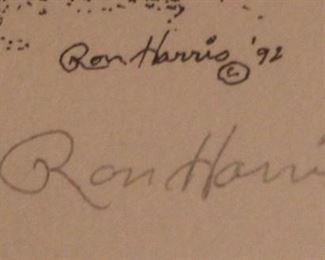 Ron Harris © '92
Ron Harri